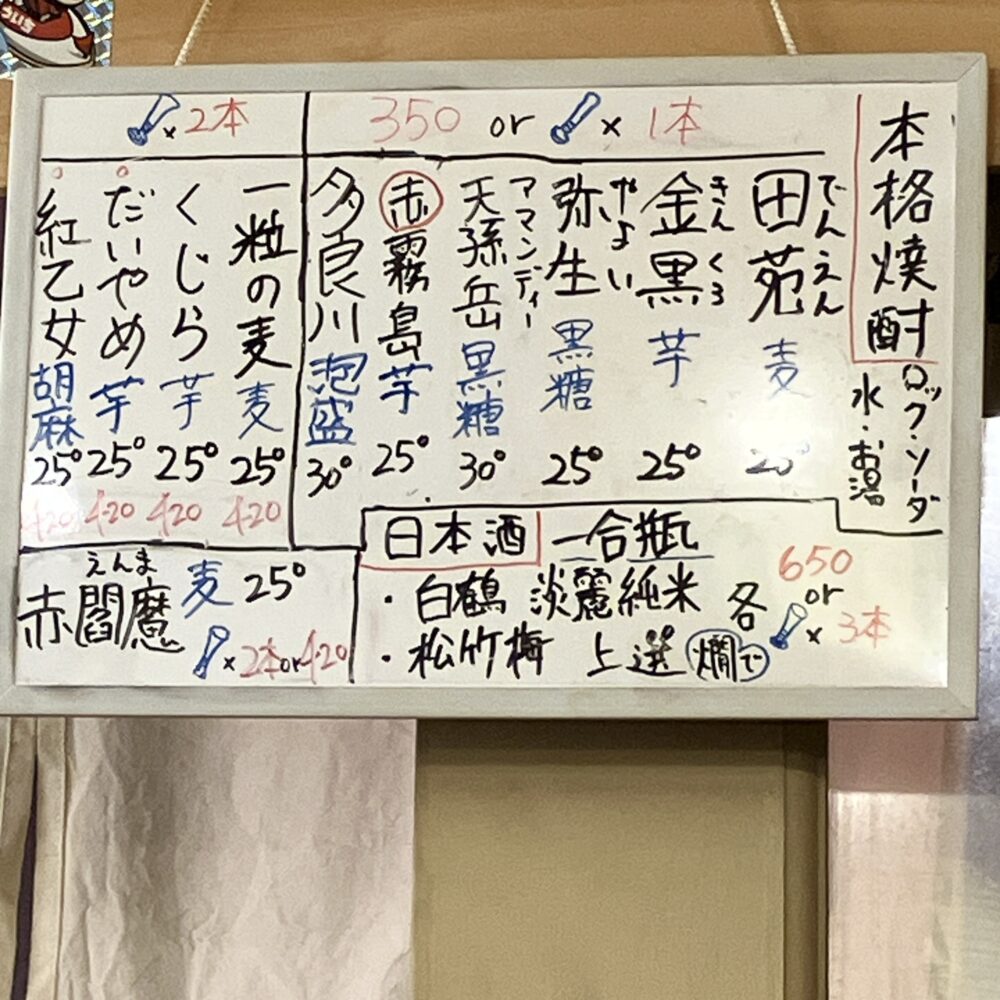 本格焼酎
ロック・ソーダ
水・お湯
350 or x 1本
田苑 でんえん 麦 25°
金黒 きんくろ 芋 25°
弥生 やよい 黒糖 25°
天孫岳 アマンディー 黒糖 30°
赤霧島 芋 25°
多良川 泡盛 30°
x 2本
一粒の麦 麦 25° 420
くじら 芋 25° 420
だいやめ 芋 25° 420
紅乙女 胡麻 25° 420
赤閻魔 えんま 麦 25°
x 2本or420
日本酒 一合瓶
・白鶴 淡麗純米
・松竹梅 上選 燗で
各 650 or x 3本
ういち